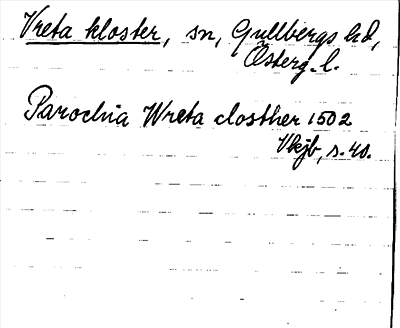 Vreta kloster, sn, Gullbergs hd,
Österg. l.
Parochia Wreta closther 1502
Vkjb, s. 40.